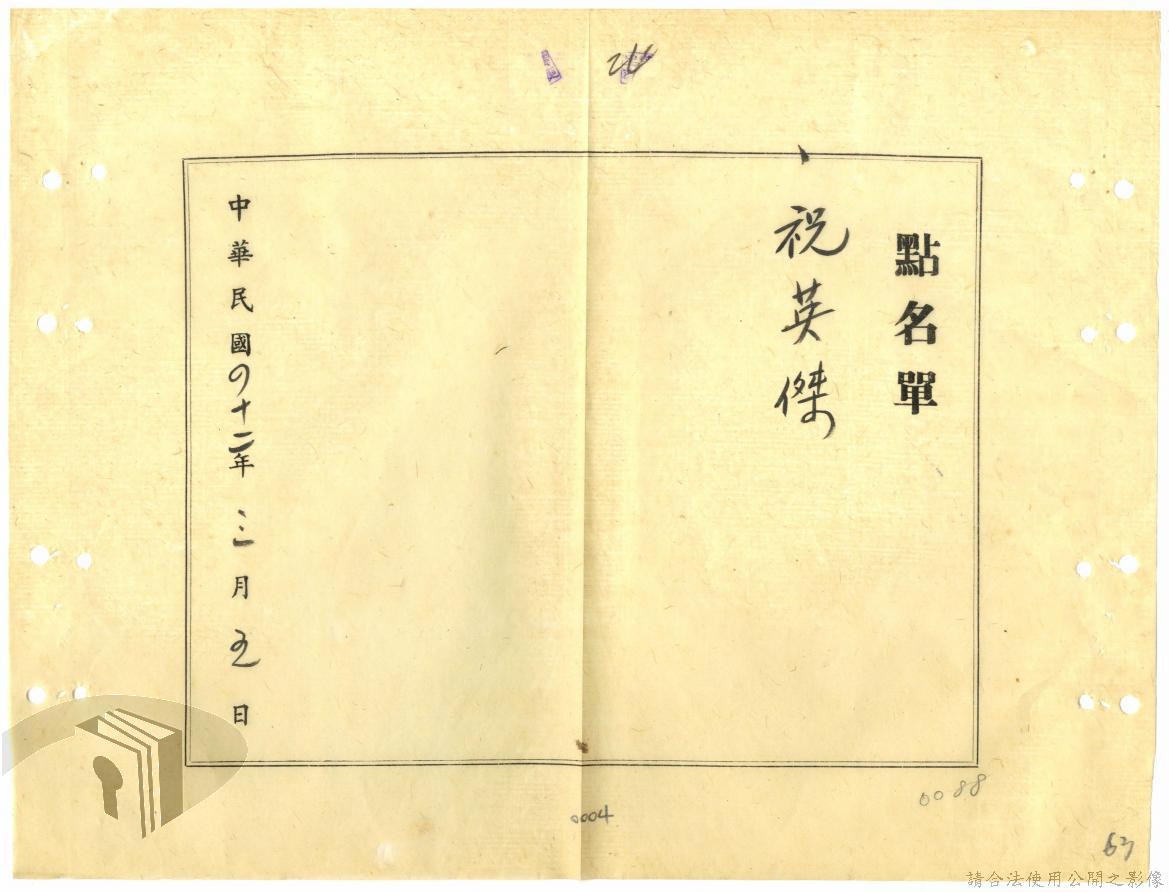 點名單
祝英傑
中華民國四十二年三月五日
0004
0088
63
請合法使用公開之影像